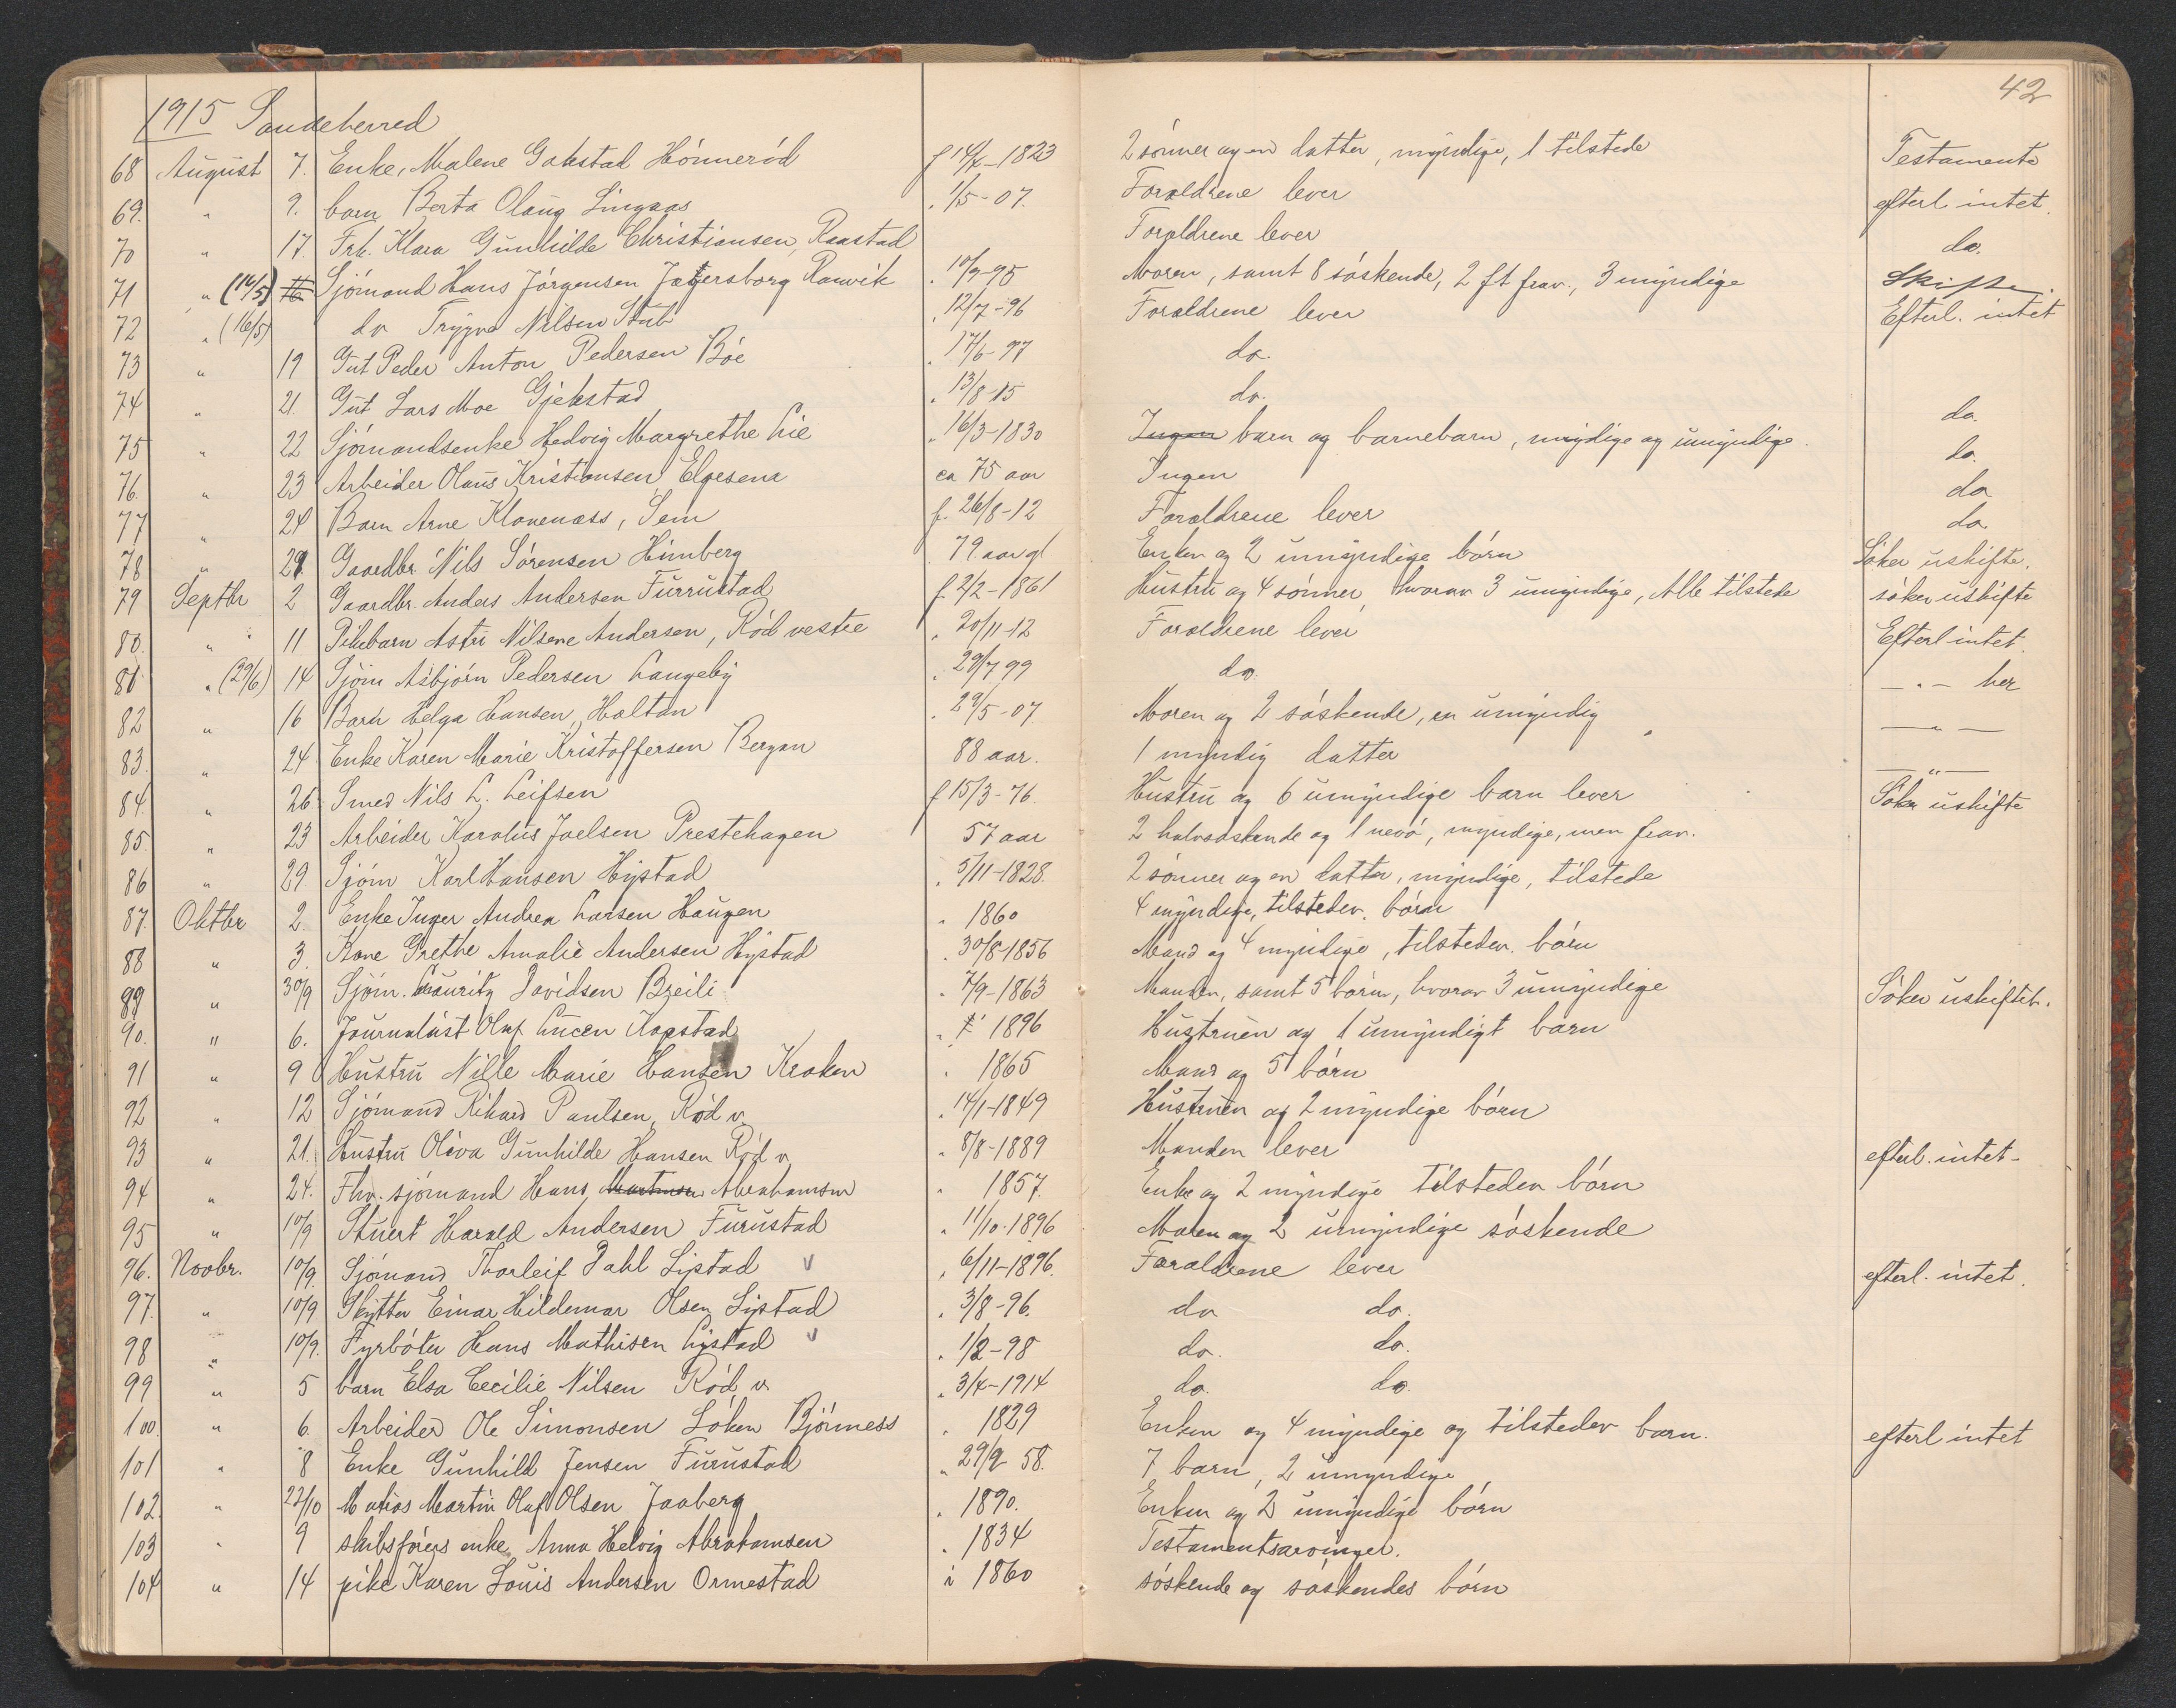 42
1915 Sandeherred
68 August 7. Enke, Malene Gokstad Hónneród f 14/4-1823 2 sónner og en datter, myndige, 1 tilstede Testamente
69. " 9. barn Berta Olaug Lingaas " 1/5-07. Forældrene lever efterl intet.
70 " 17. Frk. Klara Gunhilde Christiansen, Raastad Forældrene lever do.
71 " (14/5) 16. Sjómand Hans Jórgensen Jægersborg Ranvik " 10/9-95 Moren, samt 8 sóskende, 2 ft frav., 3 myndige Skifte.
72 " (16/5) do Trygve Nilsen Stub " 12/7-96 Forældrene lever Efterl. intet
73 " 19 Gut Peder Anton Pedersen Bóe " 17/6-97 do.
74 " 21. Gut Lars Moe Gjekstad " 13/8-15 do. do.
75 " 22 Sjómandsenke Hedvig Margrethe Lie " 16/3-1830 Ingen barn og barnebarn, mydige og umyndige. do.
76. " 23 Arbeider Olaus Kristiansen Elgesena ca 75 aar Ingen do
77 " 24 Barn Arne Klavenæss, Sem f. 26/8-12 Forældrene lever do.
78 " 29 Gaardbr. Nils Sórensen Himberg 79 aar gl Enken og 2 umyndige bórn Sóker uskifte.
79 Septbr 2 Gaardbr. Anders Andersen Furrustad f. 2/2-1861 Hustru og 4 sónner, hvorav 3 umyndige, Alle tilstede sóker uskifte
80. " 11 Pikebarn Astri Nilsene Andersen, Ród vestre " 20/11-12 Forældrene lever Efterl intet.
81 " (29/6) 14 Sjóm Asbjórn Pedersen Langeby " 29/7 99 do. - " - her
82 " 16 Barn Helga Hansen, Haltan " 29/5-07 Moren og 2 sóskende, en umyndig - " -
83. " 24 Enke Karen Marie Kristoffersen Bergan 88 aar. 1 myndig datter - " -
84. " 26 Smed Nils L. Leifsen f 15/3-76. Hustru og 6 umyndige barn lever Sóker uskifte
85. " 23 Arbeider Karolus Joelsen Prestehagen 57 aar 2 halvsóskende og 1 nevó, myndige, men frav.
86 " 29 Sjóm Karl Hansen Hystad " 5/11-1828. 2 sónner og en datter, myndige, tilstede
87. Oktbr 2. Enke Inger Andrea Larsen Haugen " 1860 4 myndige, tilstedev. bórn
88 " 3. Kone Grethe Amalie Andersen Hystad " 30/8-1856 Mand og 4 myndige, tilstedev. bórn
89 " 30/9 Sjóm. Lauritz Davidsen Breili " 7/9-1863 Manden, samt 5 bórn, hvorav 3 umyndige Sóker uskiftet.
90. " 6. Journalist Olaf Kogstad " 1896 Hustruen og 1 umyndigt barn
91 " 9 Hustru Nille Marie Hansen Kraken " 1865 Mand og 5 bórn
92 " 12 Sjómand Rikard Paulsen, Ród v. " 14/1-1849 Hustruen og 2 myndige bórn
93 " 21. Hustru Oliva Gunhilde Hansen Ród v. " 8/8-1889 Manden lever efterl. intet-
94 " 24. Fhv. sjómand Hans Martinsen Abrahamsen " 1857. Enke og 2 myndige tilstedev bórn
95 " 10/9 Stuert Harald Andersen Furustad " 11/10-1896 Moren og 2 umyndige sóskende
96. Novbr. 10/9. Sjómand Thorleif Dahl Listad v " 6/11-1896. Forældrene lever efterl. intet.
97. " 10/9 Skytter Einar Hildemar Olsen Listad " 3/8-96. do do.
98 " 10/9. Fyrbóter Hans Mathisen Lystad v " 1/2-98 do. do.
99 " 5 barn Elsa Cecilie Nilsen Ród v. " 3/4-1914 do. do.
100. " 6. Arbeider Ole Simonsen Lóken Bjórness " 1829 Enken og 4 myndige og tilstedev barn. efterl intet
101 " 8 Enke Gunhild Jensen Furustad " 29/9 58. 7 barn, 2 umyndige
102. " 23/10 Matias Martin Oluf Olsen Jaaberg " 1890. Enken og 2 umyndige bórn
103 " 9 skibsfórers enke Anna Helvig Abrahamsen " 1834 Testamentsarvinger.
104 " 14 pike Karen Louis Andersen Ormestad " 1860 sóskende og sóskendes bórn